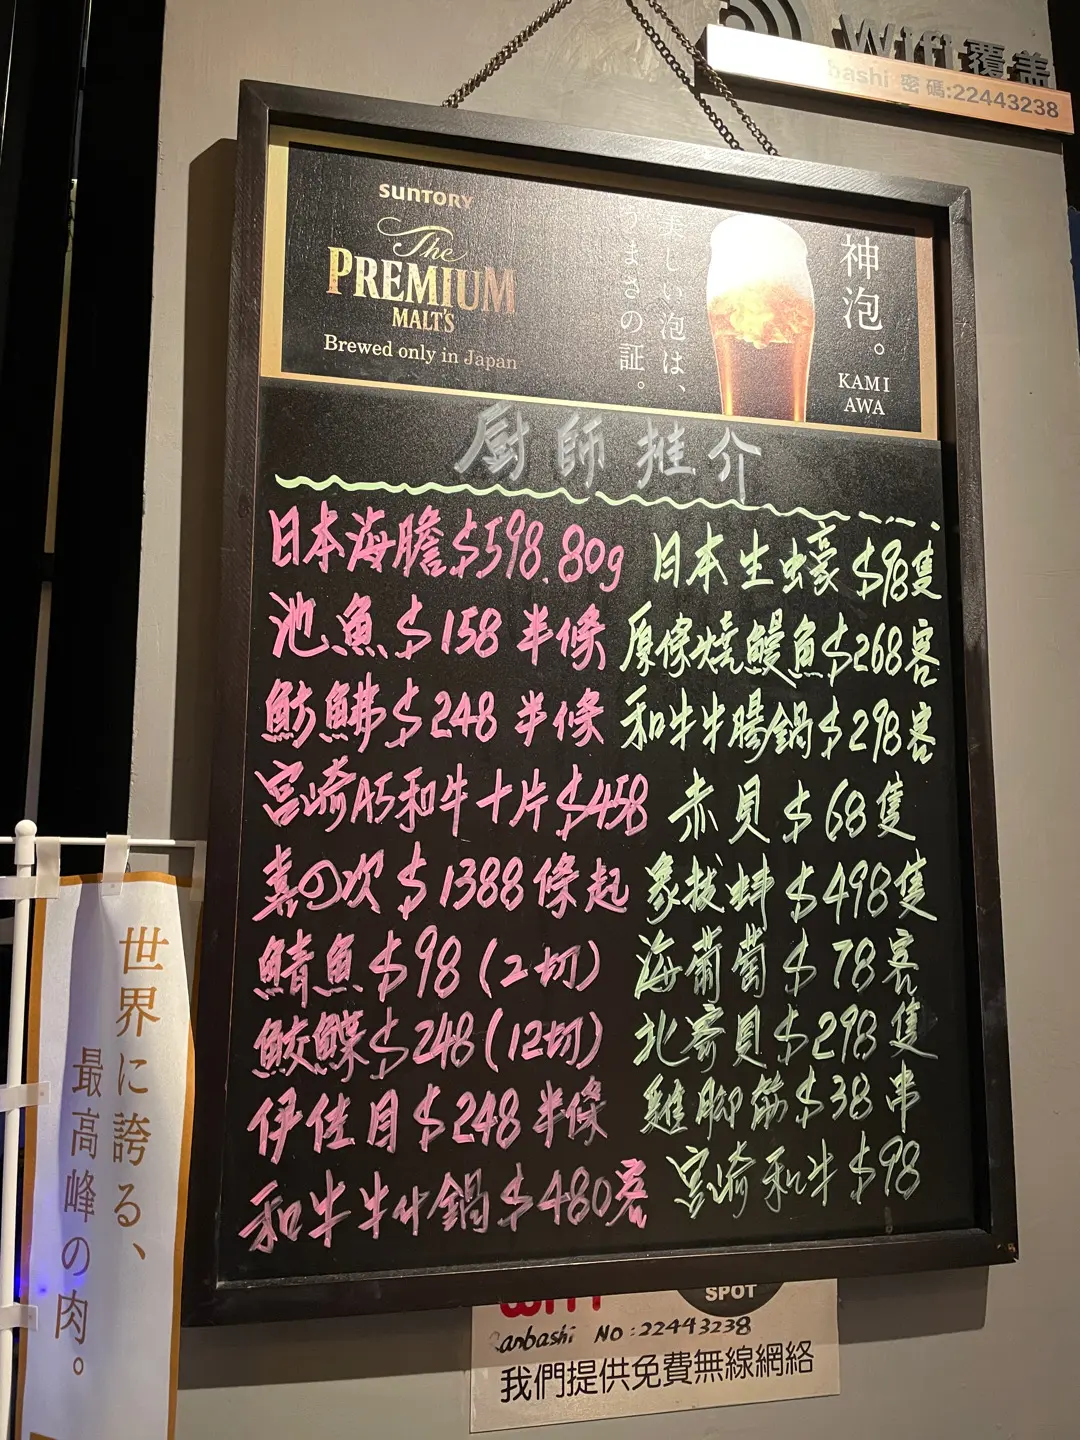 Wifi覆盖
bashi 密碼:22443238
SUNTORY
The
PREMIUM
MALT'S
Brewed only in Japan
美しい泡は、
うまさの証。
神泡。
KAMI
AWA
厨師推介
日本海膽$598.80g
池魚$158半條
魴鮄$248半條
宮崎A5和牛十片$458
喜の次$1388條起
鯖魚$98(2切)
鮫鰈$248(12切)
伊佳目$248半條
和牛牛什鍋$480客
日本生蠔$98隻
原條燒鰻魚$268客
和牛牛腸鍋$298客
赤貝$68隻
象拔蚌$498隻
海葡萄$78客
北寄貝$298隻
雞脚筋$38串
宮崎和牛$98
世界に誇る、
最高峰の肉。
SPOT
anbashi No:22443238
我們提供免費無線網絡